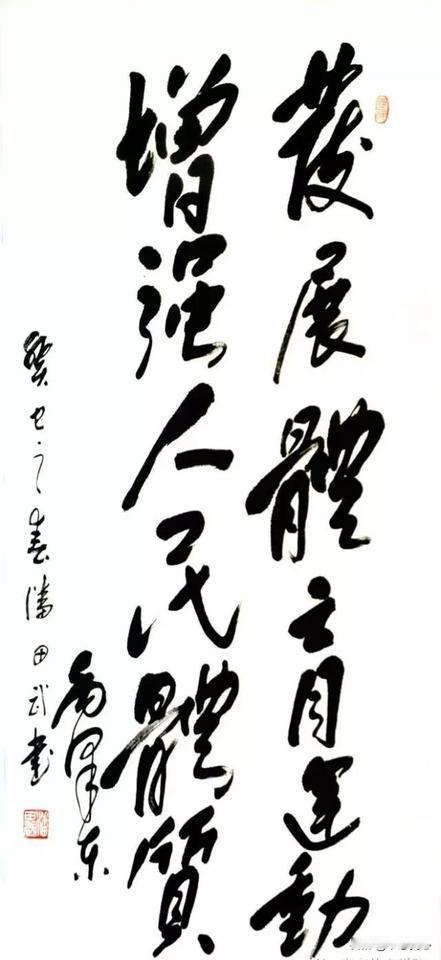 發展體育运動
增强人民體質
毛泽东
癸巳之春潘田武书